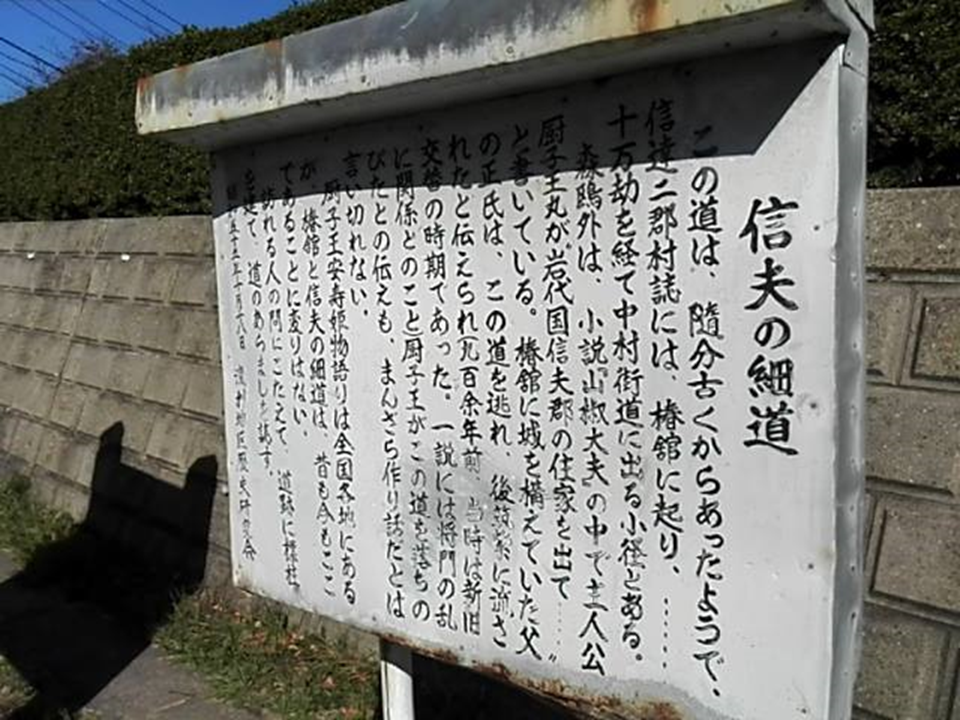 信夫の細道
この道は、随分古くからあったようで、
信達二郡村誌には、椿舘に起り、……
十万劫を経て中村街道に出る小径とある。
森鴎外は、小説『山椒大夫』の中で主人公
厨子王丸が岩代国信夫郡の住家を出て……〟
と書いている。椿舘に城を構えていた父
の正氏は、この道を逃れ、後筑紫に流さ
れたと伝えられ(九百余年前、当時は新旧
交替の時期であった。一説には将門の乱
に関係とのこと)厨子王がこの道を落ちの
びたとの伝えも、まんざら作り話だとは
言い切れない。
厨子王安寿姫物語りは全国各地にある
が、椿舘と信夫の細道は、昔も今もここ
であることに変りはない。
訪れる人の問にこたえて、道跡に標柱
を建て、道のあらましを誌す。
昭和五十五年十月十八日 渡利地区歴史研究会